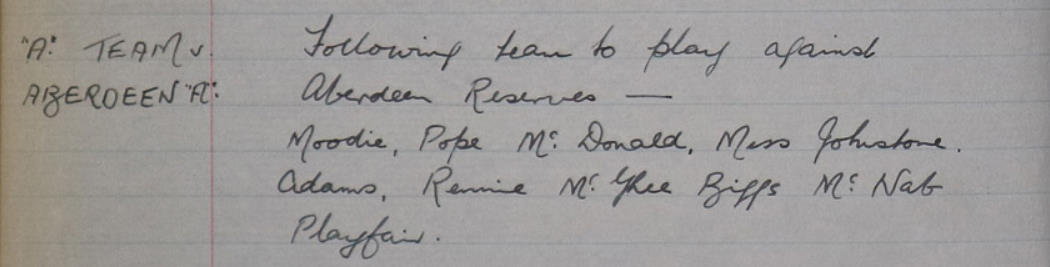 "A." TEAM v. Following team to play against
ABERDEEN "A". Aberdeen Reserves —
Moodie, Pope Mc Donald, Mess Johnstone.
Adams, Rennie Mc Ghee Biggs Mc Nab
Playfair.